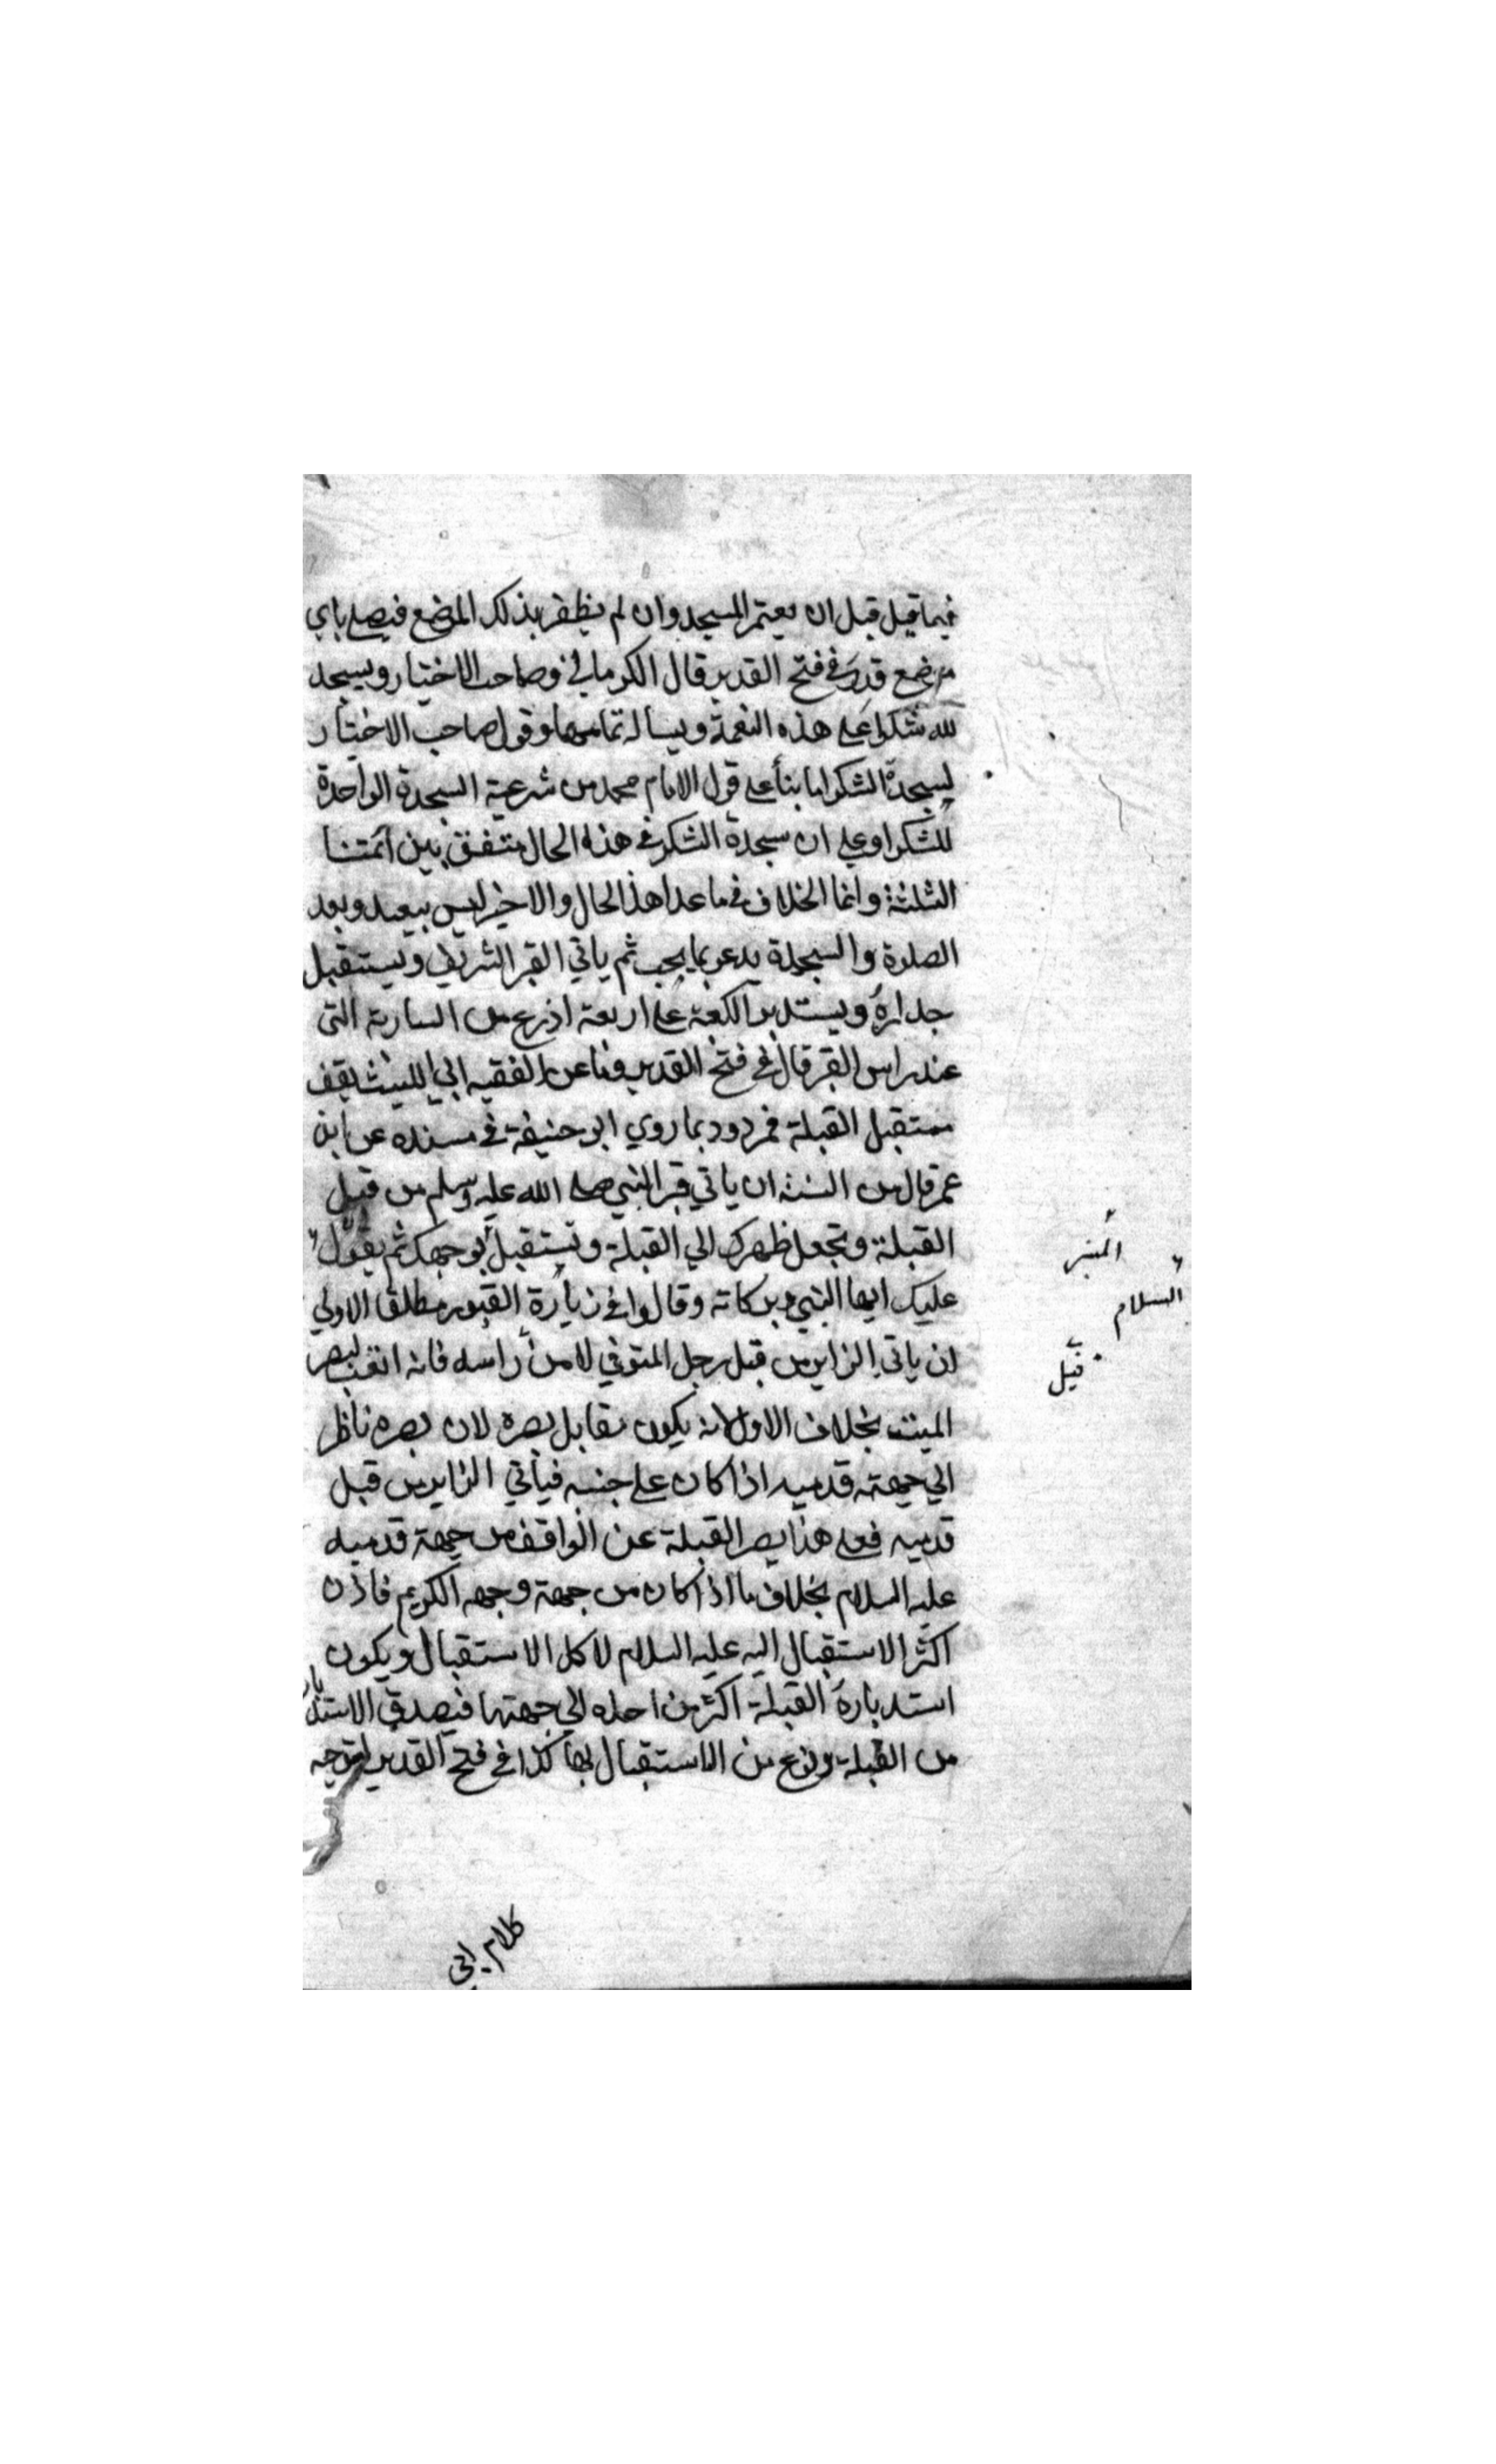 فيما قيل قبل ان يعتمر المسجد وان لم يظفر بذلك الموضع فيصلي باي
موضع قدر في فتح القدير قال الكرماني وصاحب الاختيار ويسجد
لله شكرا على هذه النعمة ويساله تمامها وقول صاحب الاختيار
ليسجدة الشكر اما بنأ على قول الامام محمد من شرعية السجدة الواحدة
للشكر او على ان سجدة الشكر في هذه الحال متفق بين ائمتنا
الثلثة وانما الخلاف في ما عدا هذا الحال والاخير ليس ببعيد وبعد
الصلوة والسجدة يدعو بما يجب ثم ياتي القبر الشريف ويستقبل
جداره ويستدبر الكعبة على اربعة اذرع من السارية التي
عند راس القبر قال في فتح القدير وما عن الفقيه ابي الليث يقف
مستقبل القبلة فمردود بما روي ابو حنيفة في مسنده عن ابن
عمر قال من السنة ان ياتي قبر النبي صلى الله عليه وسلم من قبل
القبلة وتجعل ظهرك الي القبلة وتستقبل بوجهك ثم يقول
عليك ايها النبي وبركاته وقالوا في زيارة القبور مطلقا الاولي
ان ياتي الزاير من قبل رجل المتوفي لا من راسه فانه اتعب لبصر
الميت بخلاف الاول لانه يكون مقابل بصره لان بصره ناظر
الي جهة قدميه اذا كان على جنبه فيأتي الزاير من قبل
قدميه فعلى هذا يصر القبلة عن الواقف من جهة قدميه
عليه السلام بخلاف ما اذا كان من جهة وجهه الكريم فاذن
اكثر الاستقبال اليه عليه السلام لا كل الاستقبال ويكون
استدباره القبلة اكثر من احده الي جهتها فيصدق الاستدبار
من القبلة ونوع من الاستقبال بها كذا في فتح القدير لتوجيه
المنبر
السلام
قيل
كلام ابي